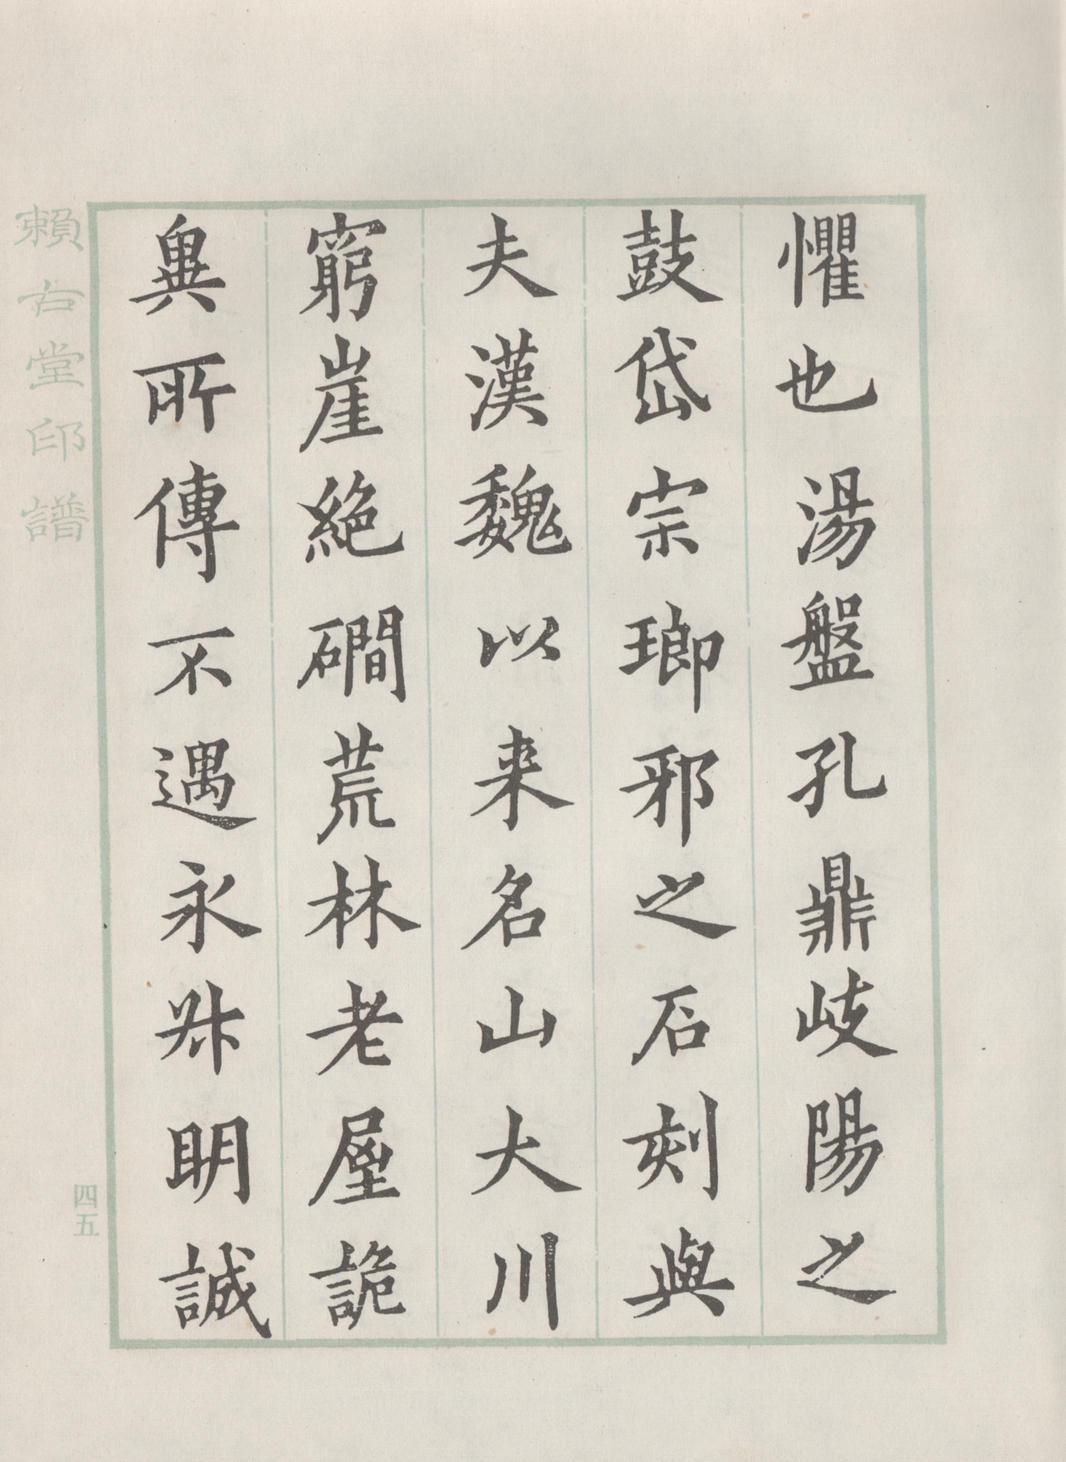 懼也湯盤孔鼎岐陽之
鼓岱宗瑯邪之石刻與
夫漢魏以来名山大川
窮崖絕磵荒林老屋詭
異所傳不遇永叔明誠
賴古堂印譜
四五